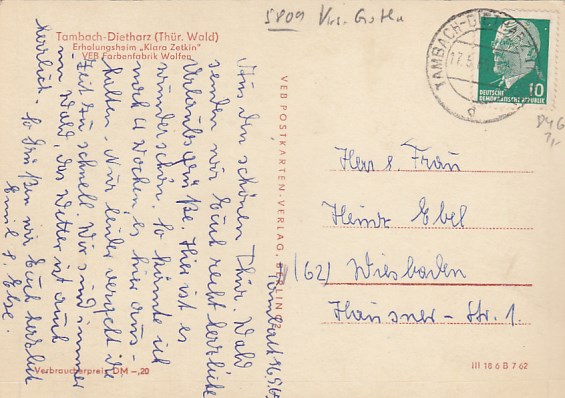 Tambach-Dietharz (Thür. Wald)
Erholungsheim „Klara Zetkin"
VEB Farbenfabrik Wolfen
5809 Krs. Gotha
TAMBACH-DIETHARZ
17.5.
d
10
DEUTSCHE
DEMOKRATISCHE REPUBLIK
Aus dem schönen Thür. Wald
senden wir Euch recht herzliche
Urlaubsgrüße. Hier ist es
wunderschön. So könnte ich
noch 4 Wochen es hier aus-
halten. Nur leider vergeht die
Zeit zu schnell. Wir sind immer
im Wald, das Wetter ist auch
herrlich. So grüßen wir Euch herzlich
Emil &. Else.
Tambach 16.5.
VEB POSTKARTEN-VERLAG, BERLIN
Herr &. Frau
Heinz Ebel
(62) Wiesbaden
Hausner-Str. 1.
Verbraucherpreis DM -,20
III 18 6 B 7 62